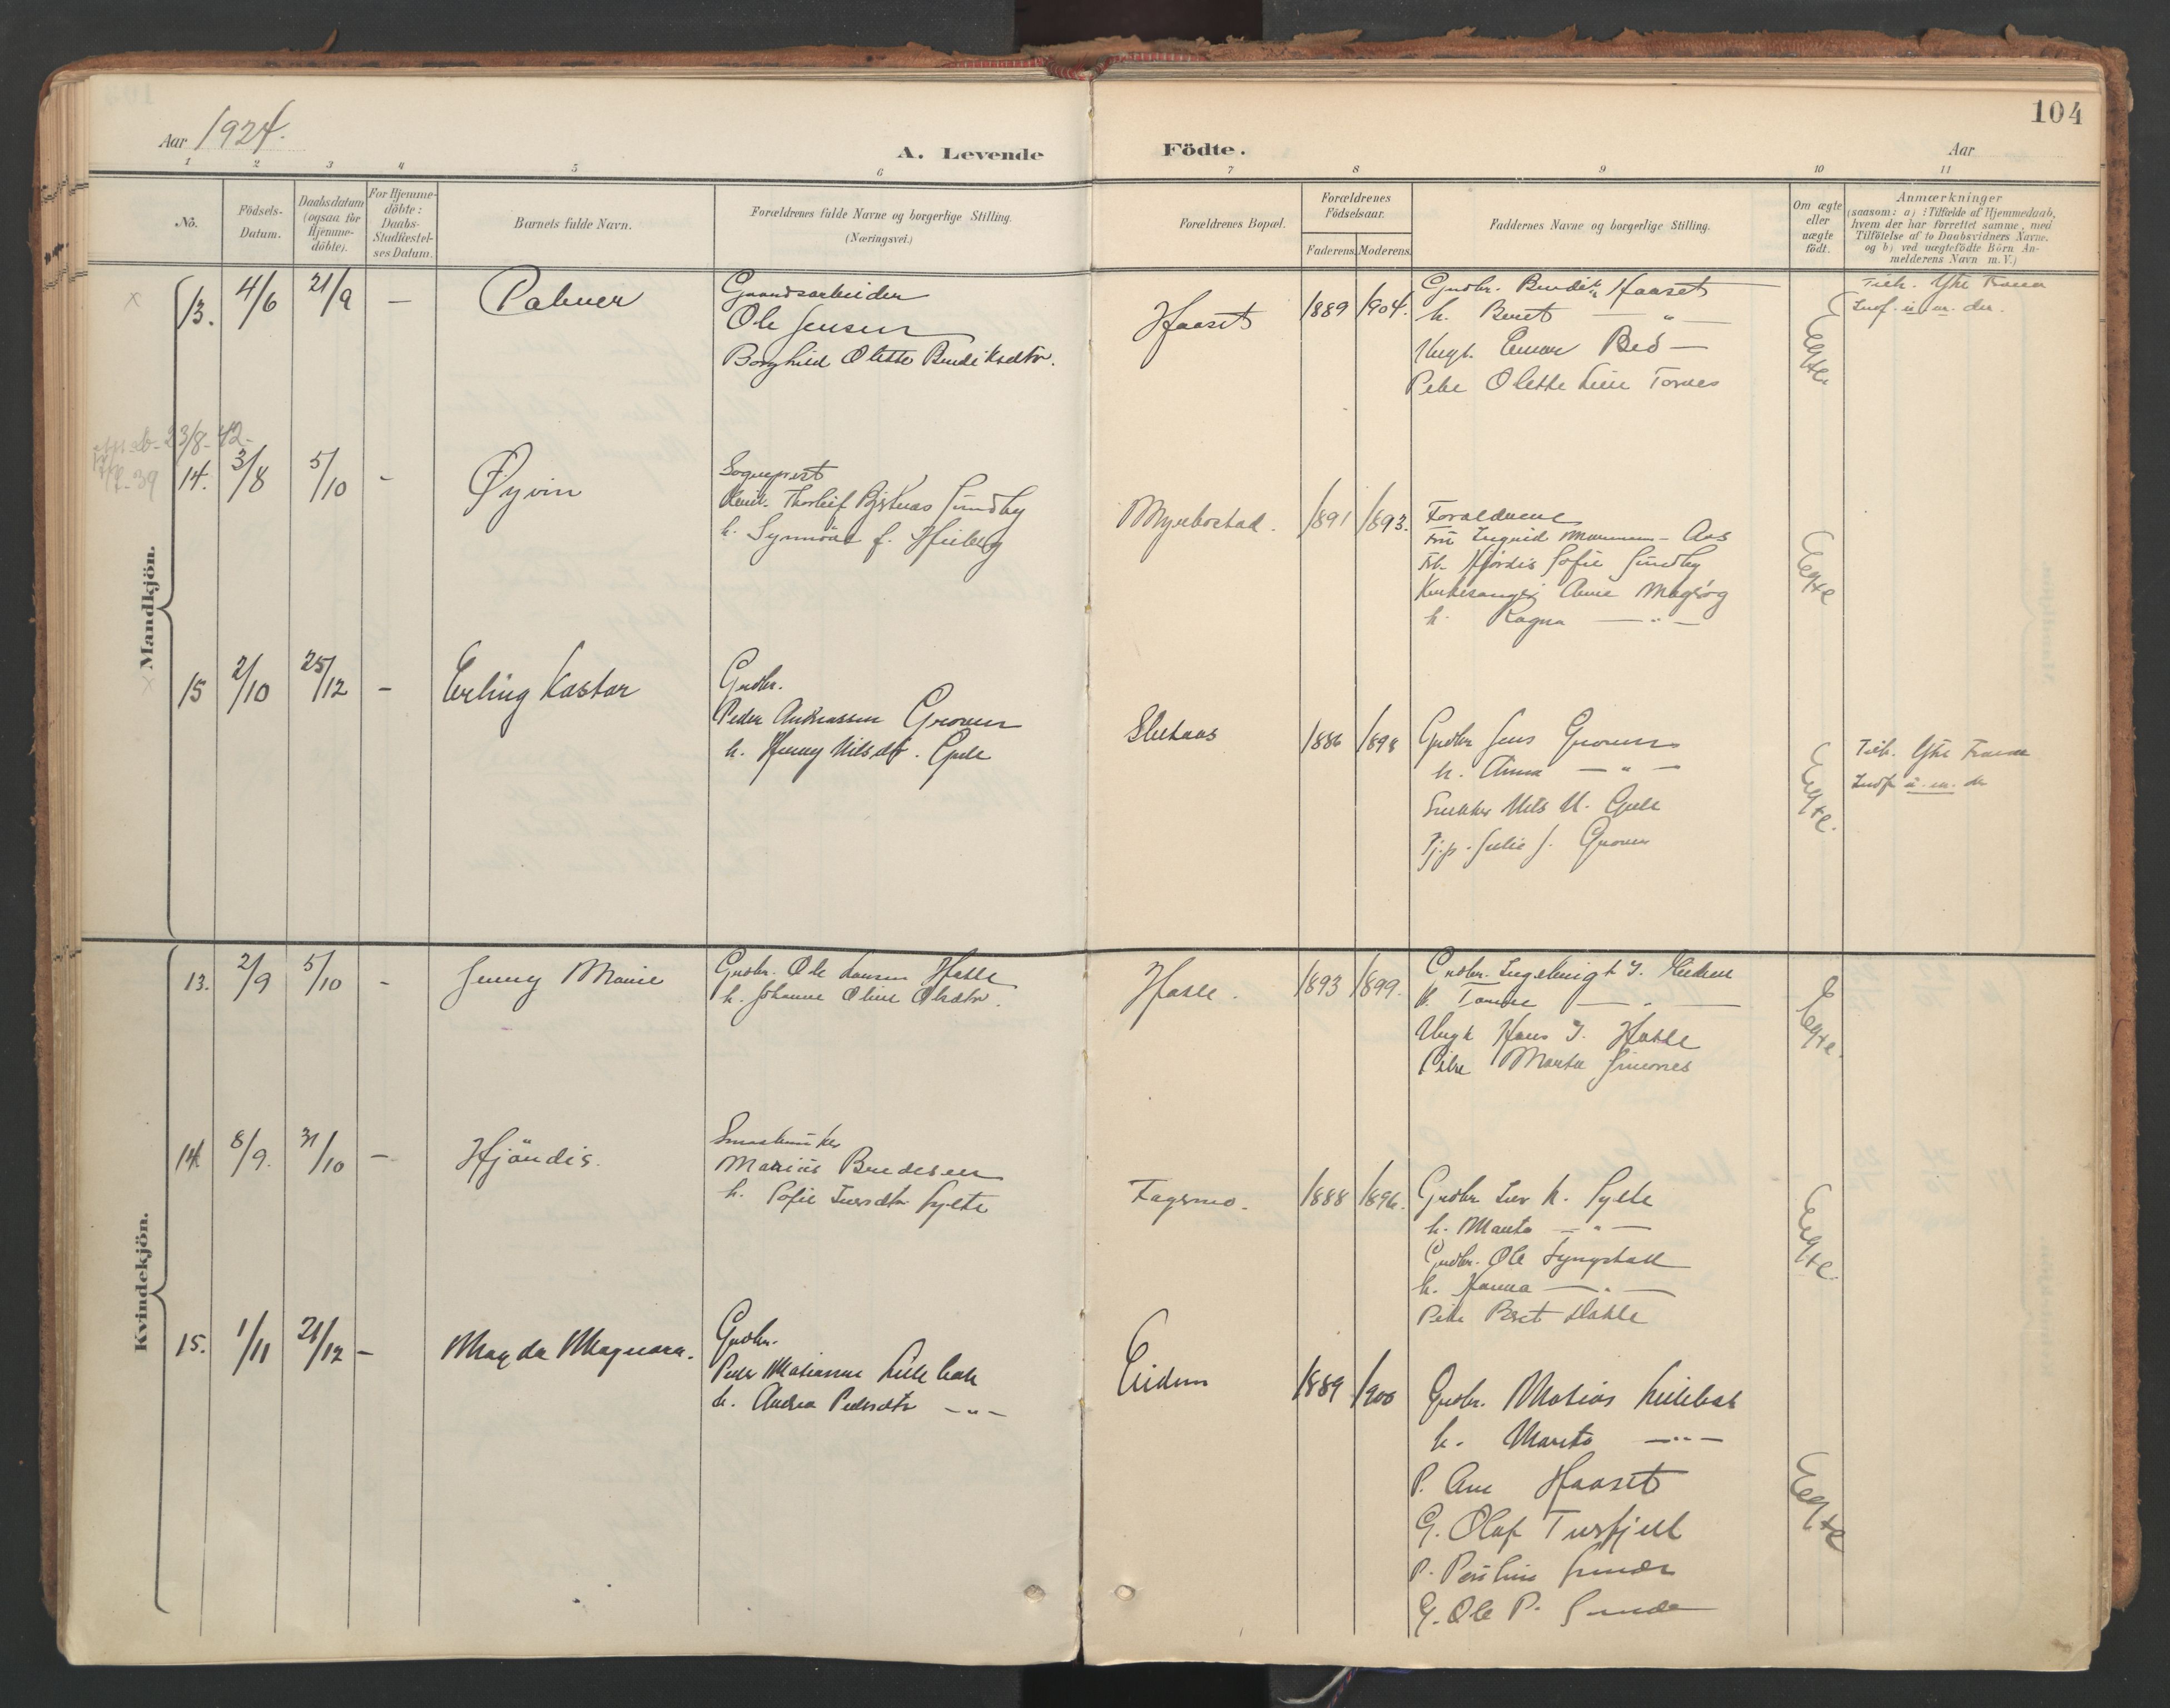 104
Aar 1924.
A. Levende Födte.
Aar
1 2 3 4 5 6 7 8 9 10 11
No.
Födsels-
Datum.
Daabsdatum
(ogsaa for
Hjemme-
döbte).
For Hjemme-
döbte:
Daabs-
Stadfæstel-
ses Datum.
Barnets fulde Navn.
Forældrenes fulde Navne og borgerlige Stilling.
(Næringsvei.)
Forældrenes Bopæl.
Forældrenes
Födselsaar.
Faderens. Moderens.
Faddernes Navne og borgerlige Stilling.
Om ægte
eller
uægte
födt.
Anmærkninger
(saasom: a) : Tilfælde af Hjemmedaab,
hvem der har forrettet samme, med
Tilföielse af to Daabsvidners Navne.
og b) ved uægtefödte Börn An-
melderens Navn m. V.)
Mandkjön.
x
13. 4/6 21/9 — Palmer
Ole Jensen
Borghild Olette Bendiksdtr.
Haaset 1889 1904.
Gmbr. Bendik Haaset
h. Beret — " —
Ungk. Einar Bed —
Pike Olette Lien Tornes
Egte.
23/8-42-
39
14. 3/8 5/10 - Øyvin
Sogneprest
Thorleif Sundby
h. Synnöve f. Hiberg
Myrbostad. 1891 1893.
Foreldrene
Fru Ingrid - Aas
Frk. Hjørdis Sofie Sundby
Kirkesanger Arne Magerøg
h. Ragna — " —
Egte
x
15 2/10 25/12 - Erling Kastor
Gmbr.
Peder Andreassen Groven
h. Henny Nilsdtr. Gule
1886 1898
Gmbr Jens Groven
h. Anna — " —
Snekker Nils N. Gule
Pj.p. Julie J. Groven
Egte.
Kvindekjön.
13. 2/9 5/10 - Jenny Marie
Gmbr. Ole Larsen Hasle
h. Johanne Oline Olsdtr.
Hasle. 1893 1899.
h. — " —
Ungk Hans I. Hasle
Pike Marta
Egte.
14. 8/9. 31/10 — Hjördis.
Smaabruker
Marius Bendesen
h. Sofie Iversdtr. Sylte
Fagermo. 1888 1896.
Gmbr Iver K. Sylte
h. Marta — " —
Gmbr. Ole Lyngstad
h. Hanna — " —
Pike Beret Dahle
Egte.
15. 1/11 21/12 — Magda Magnora.
Gmbr.
Peder Matiassen Lillebak
h. Andrea Pedersdtr — " —
Eidem 1889 1900
Gmbr. Matias Lillebak
h. Marta — " —
P. Ane Haaset
G. Olaf
P. Sunde
G. Ole P. Sunde
Egte